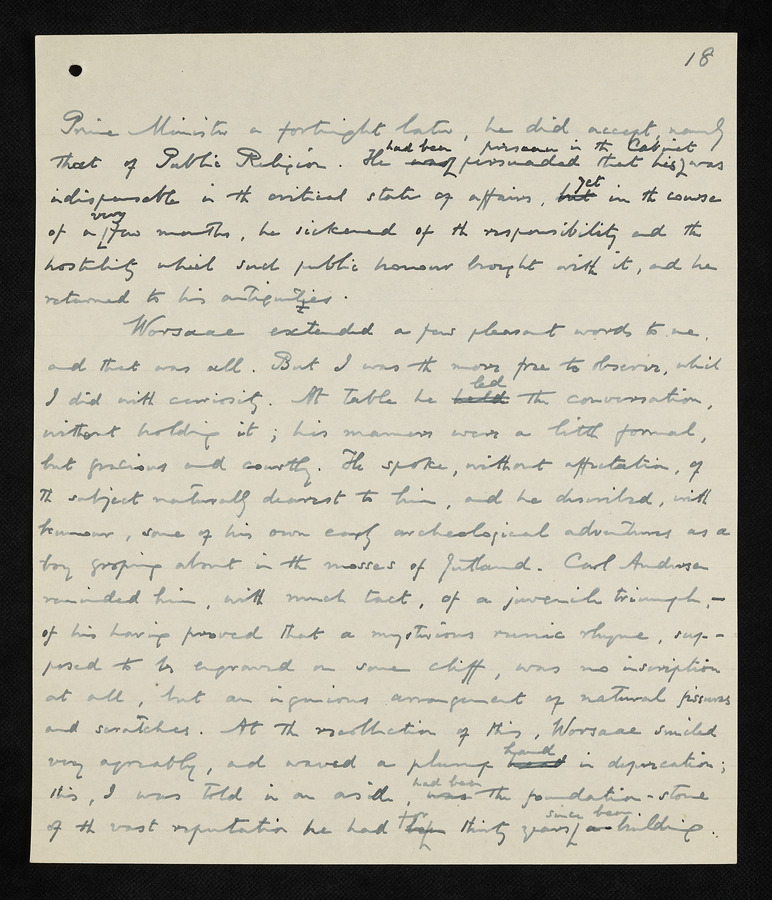 18
Prime Minister a fortnight later, he did accept, namely
that of Public Religion. He had been persuaded that his presence in the Cabinet was
indispensable in the critical state of affairs, yet in the course
of a very few months, he sickened of the responsibility and the
hostility which such public honour brought with it, and he
returned to his antiquities.
Worsaae extended a few pleasant words to me,
and that was all. But I was the more free to observe, which
I did with curiosity. At table he led the conversation,
without holding it; his manners were a little formal,
but gracious and courtly. He spoke, without affectation, of
the subject naturally dearest to him, and he described, with
humour, some of his own early archeological adventures as a
boy groping about in the mosses of Jutland. Carl Andersen
reminded him, with much tact, of a juvenile triumph,—
of his having proved that a mysterious runic rhyme, sup-
posed to be engraved on some cliff, was no inscription
at all, but an ingenious arrangement of natural fissures
and scratches. At the recollection of this, Worsaae smiled
very agreeably, and waved a plump hand in deprecation;
this, I was told in an aside, had been the foundation-stone
of the vast reputation he had for thirty years since been building.